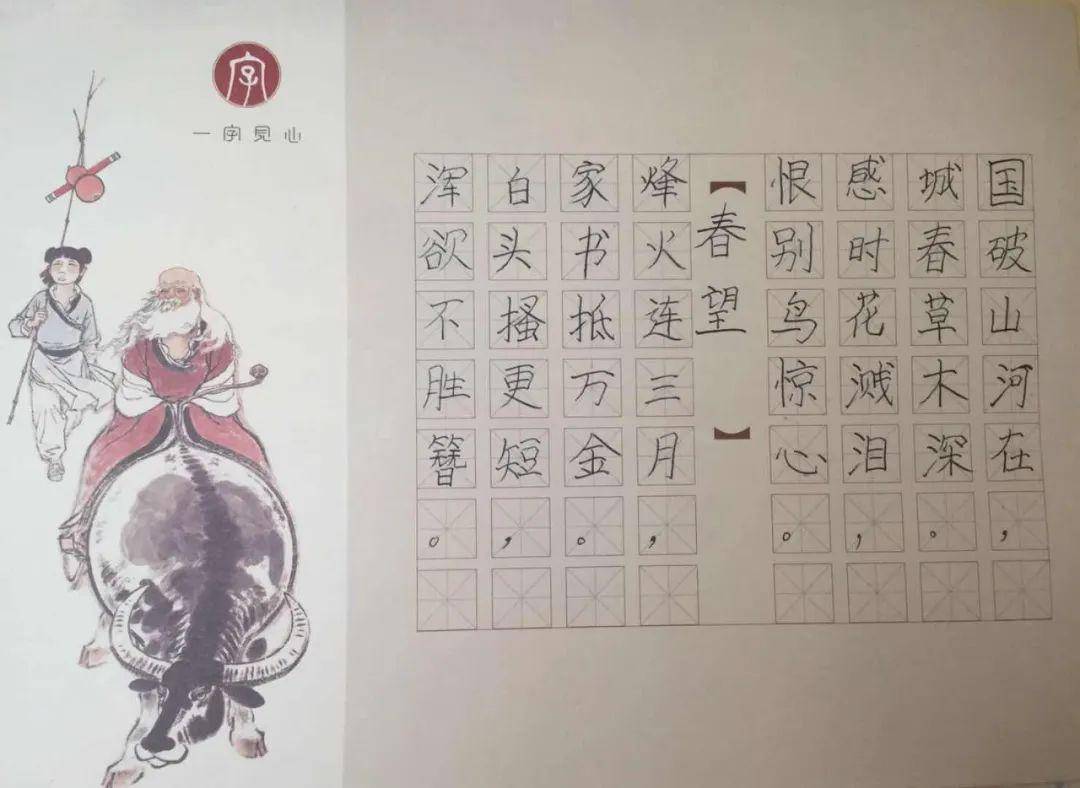 字
一字見心
国破山河在，
城春草木深。
感时花溅泪，
恨别鸟惊心。
【春望】
烽火连三月，
家书抵万金。
白头搔更短，
浑欲不胜簪。